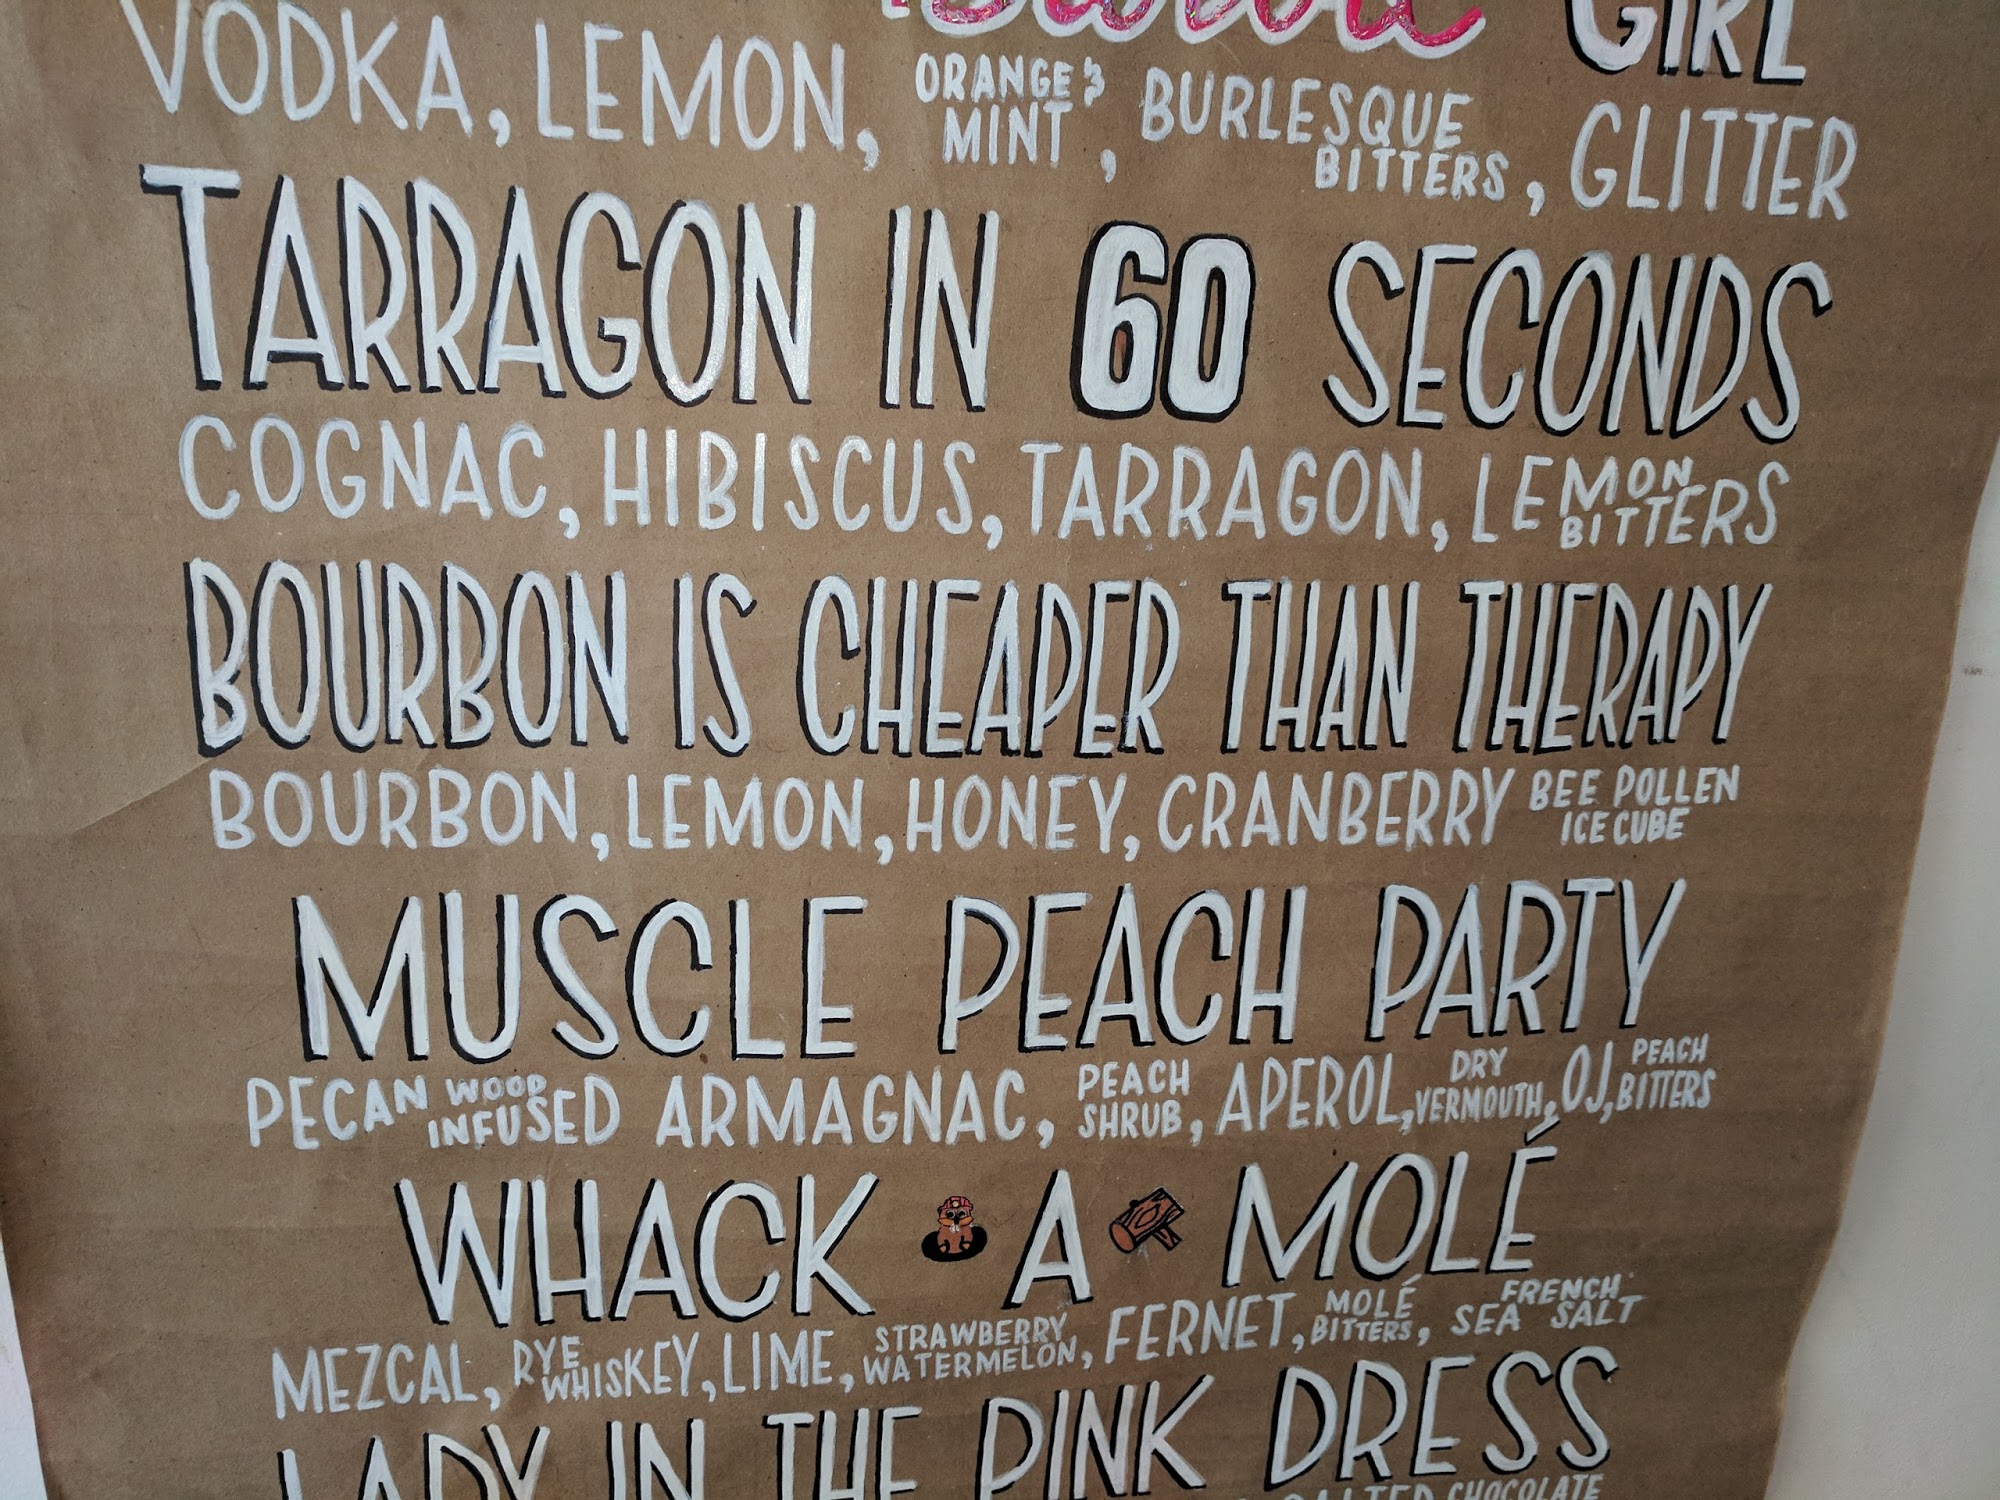 Barbie GIRL
VODKA, LEMON, ORANGE & MINT, BURLESQUE BITTERS, GLITTER
TARRAGON IN 60 SECONDS
COGNAC, HIBISCUS, TARRAGON, LEMON BITTERS
BOURBON IS CHEAPER THAN THERAPY
BOURBON, LEMON, HONEY, CRANBERRY BEE POLLEN ICE CUBE
MUSCLE PEACH PARTY
PECAN WOOD INFUSED ARMAGNAC, PEACH SHRUB, APEROL, DRY VERMOUTH, OJ, PEACH BITTERS
WHACK A MOLÉ
MEZCAL, RYE WHISKEY, LIME, STRAWBERRY WATERMELON, FERNET, MOLÉ BITTERS, FRENCH SEA SALT
LADY IN THE PINK DRESS
SALTED CHOCOLATE